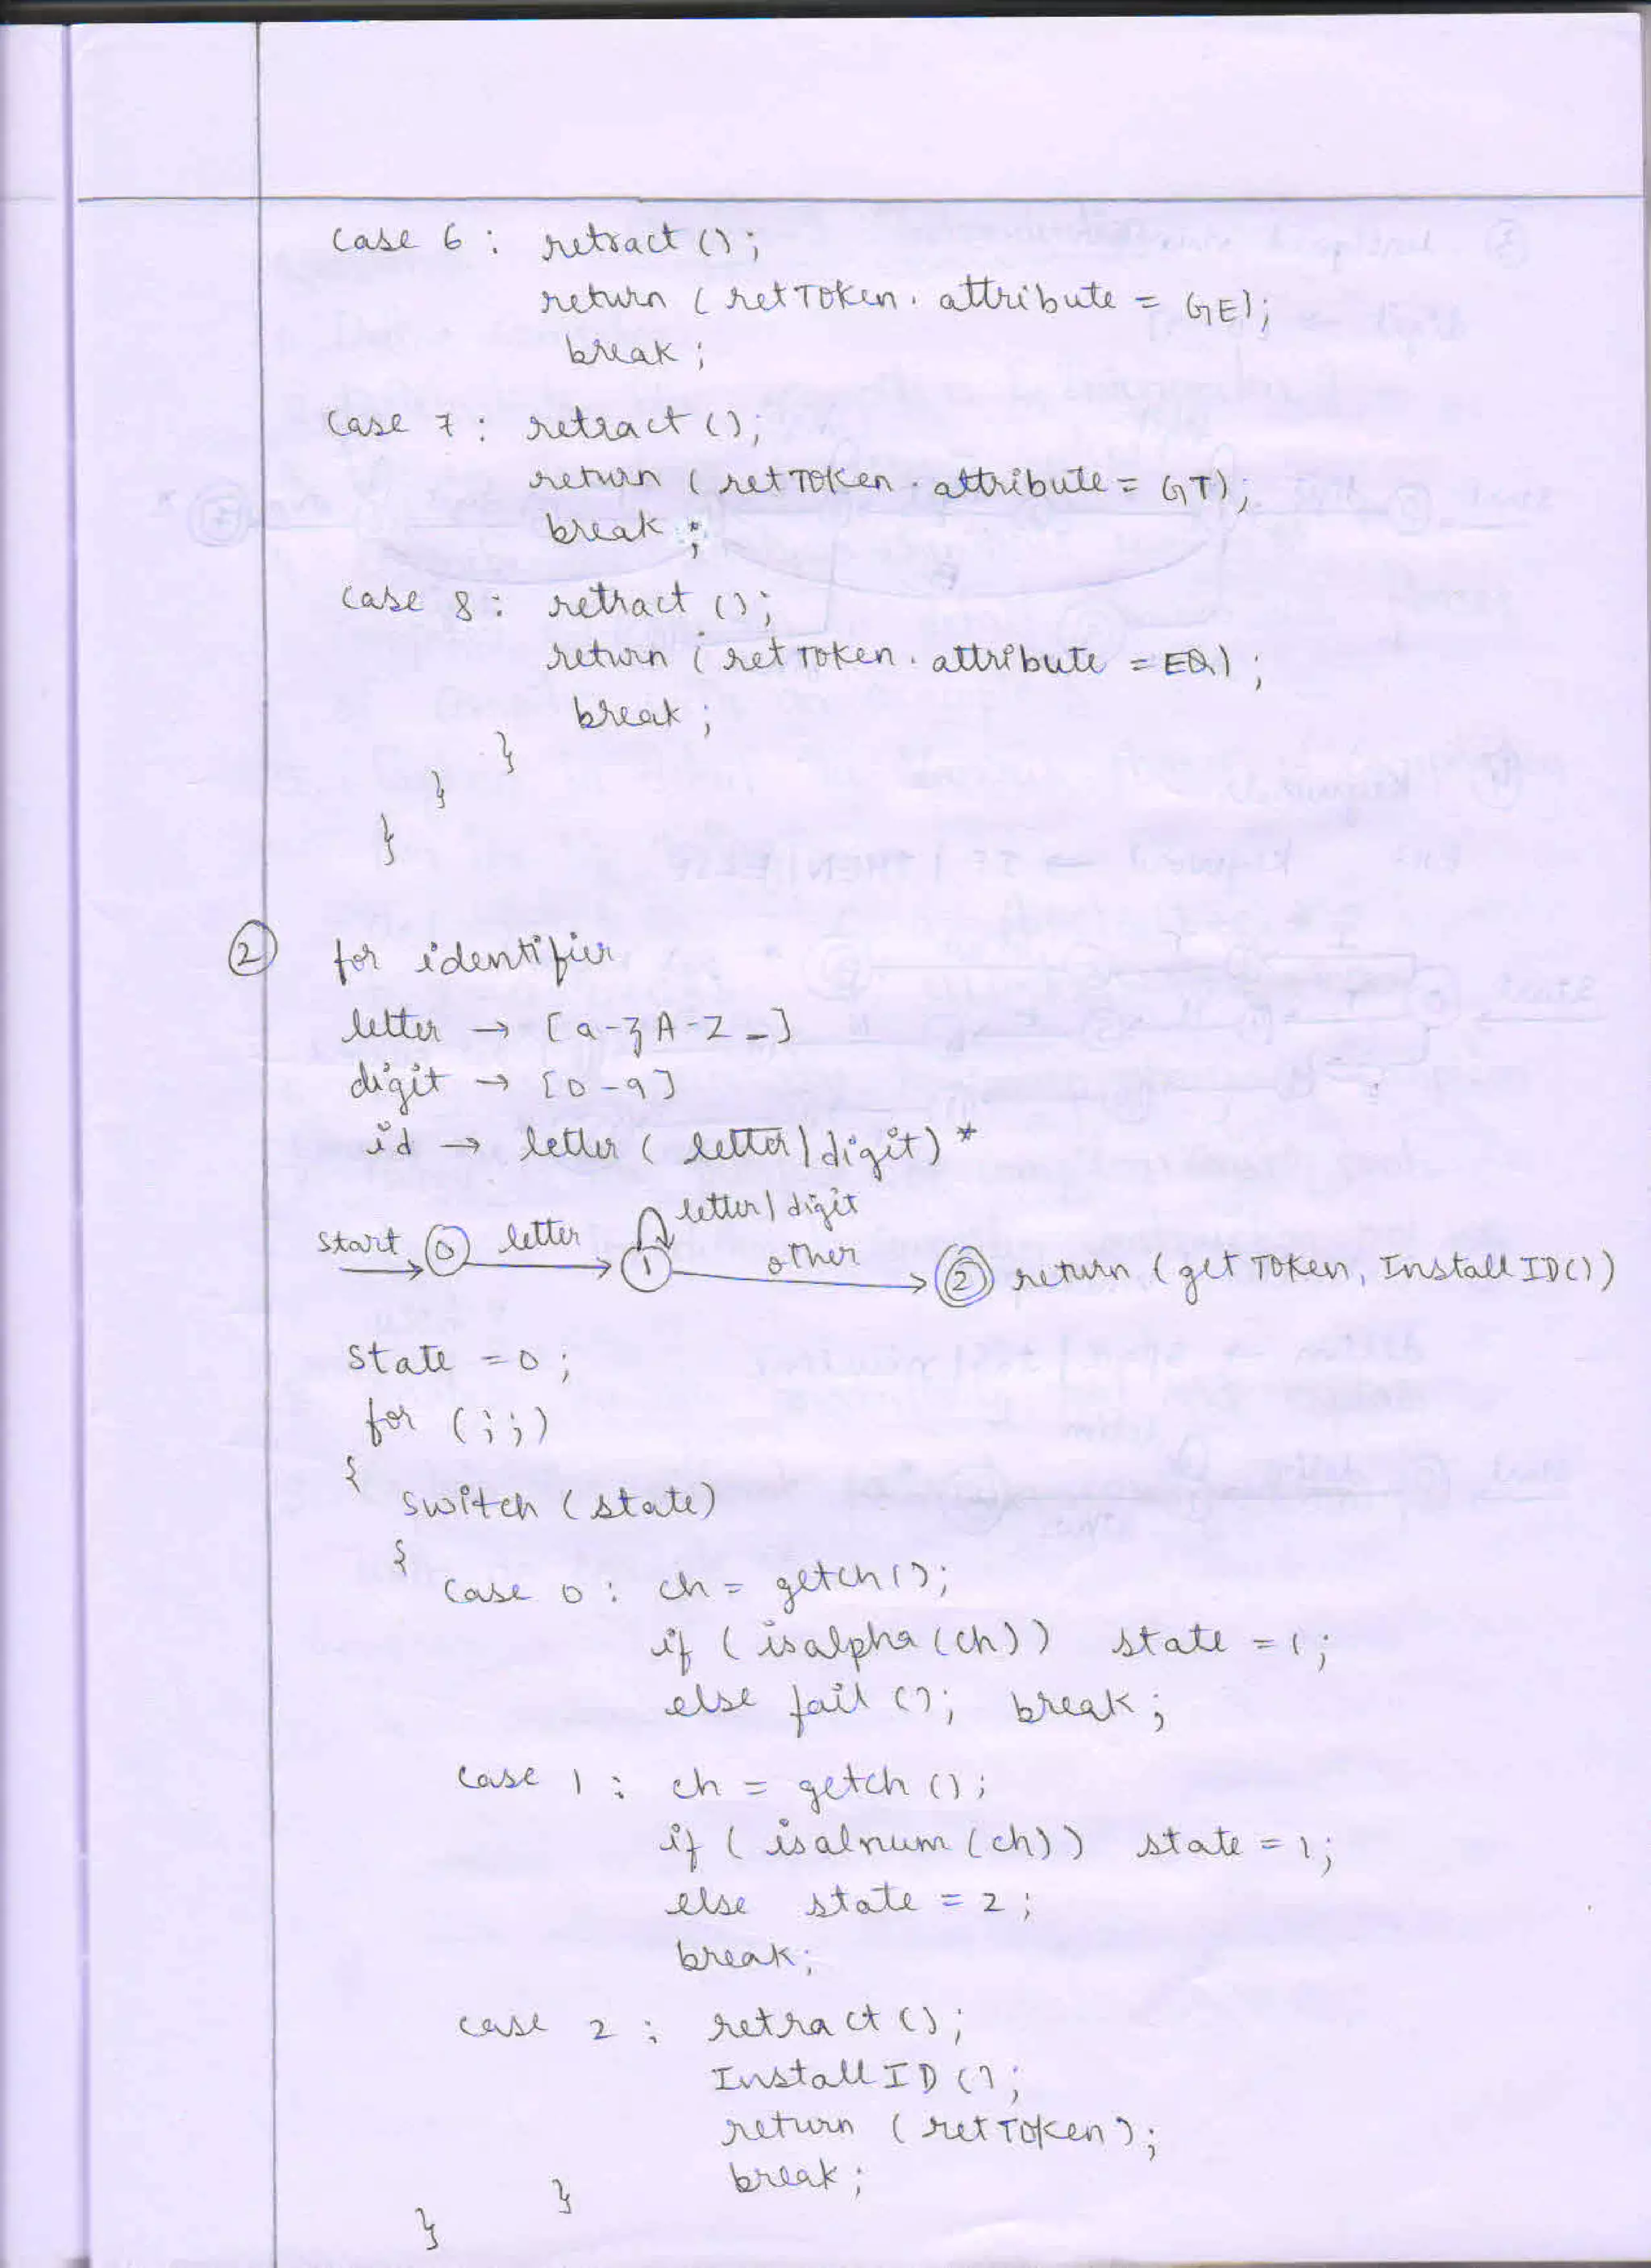 case 6 : retract ();
return (retToken. attribute = GE);
break ;
case 7 : retract ();
return (retToken. attribute = GT);
break ;
case 8 : retract ();
return (retToken. attribute = EQ) ;
break ;
}
}
}
② for identifier
letter → [a-zA-Z_]
digit → [0-9]
id → letter ( letter/digit) *
letter/digit
start 0 letter 1 other 2 return (getToken, InstallID())
state = 0 ;
for (;;)
{
switch (state)
{
case 0 : ch = getch();
if (isalpha (ch)) state = 1 ;
else fail (); break ;
case 1 : ch = getch ();
if (isalnum (ch)) state = 1 ;
else state = 2 ;
break;
case 2 : retract ();
InstallID ();
return (retToken);
break ;
}
}